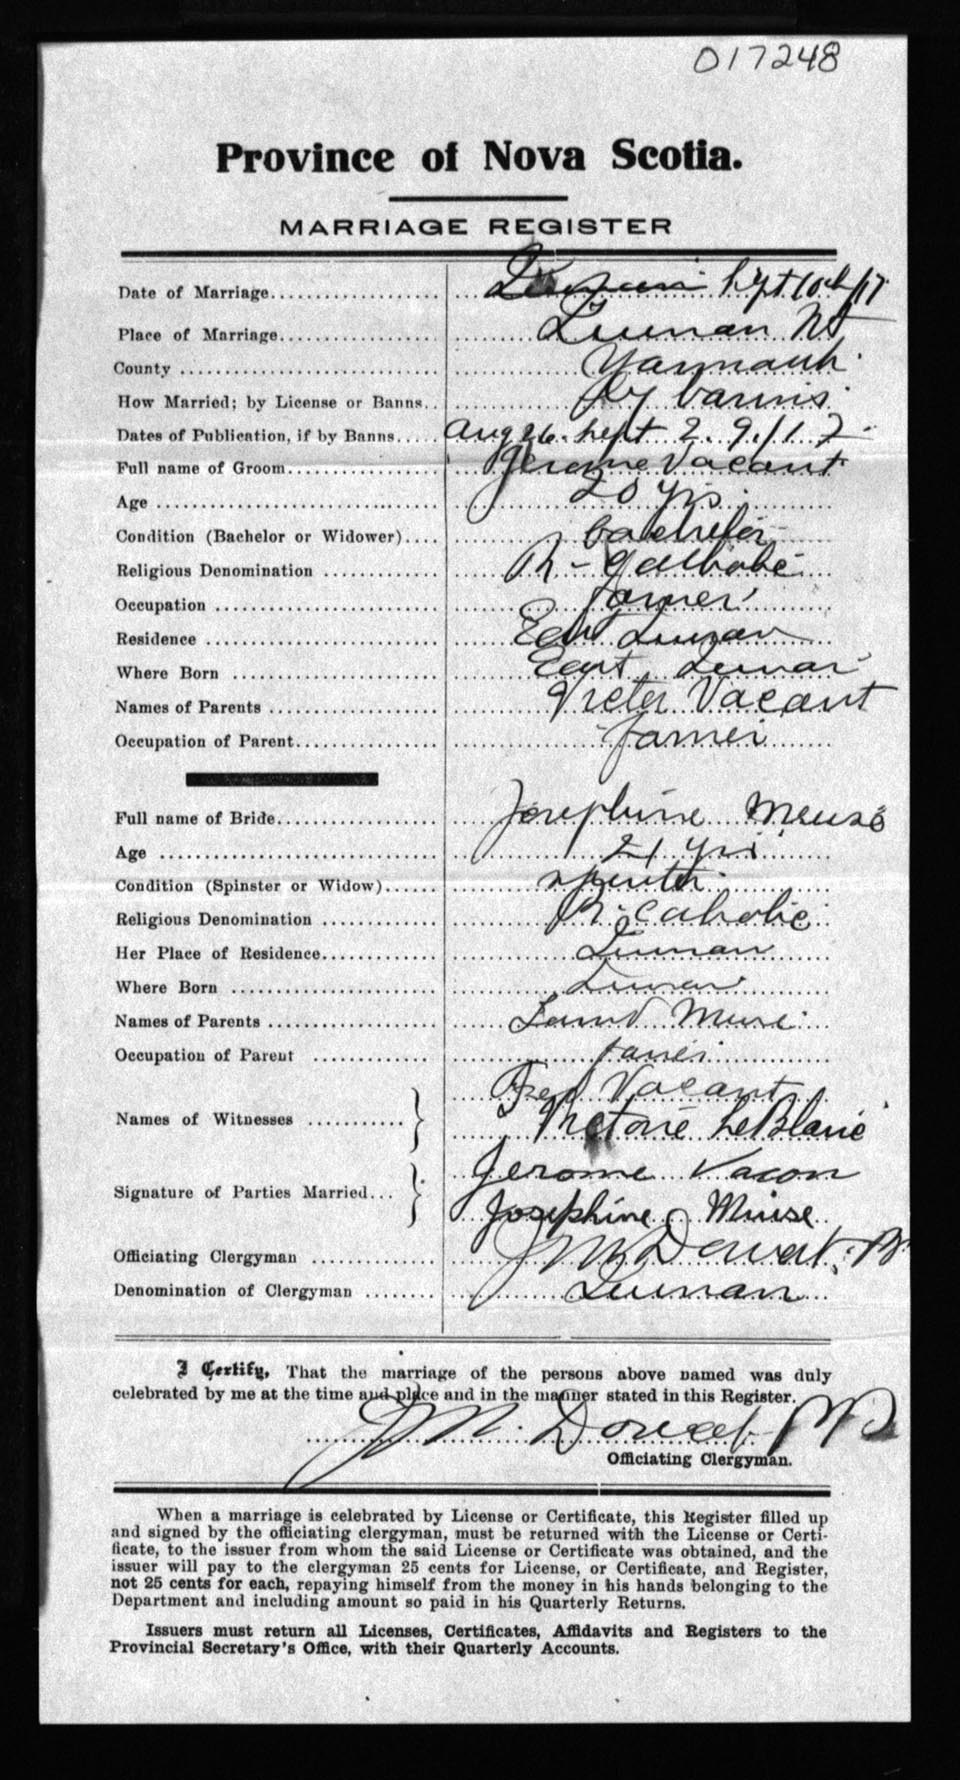 017248
Province of Nova Scotia.
MARRIAGE REGISTER
Date of Marriage Sept 10th/17
Place of Marriage NS
County Yarmouth
How Married; by License or Banns By banns
Dates of Publication, if by Banns Aug 26. Sept 2. 9./17
Full name of Groom Jerome Vacant
Age 20 yrs
Condition (Bachelor or Widower) bachelor
Religious Denomination R - Catholic
Occupation farmer
Residence East
Where Born East
Names of Parents Victor Vacant
Occupation of Parent farmer
Full name of Bride Josephine Meuse
Age 21 yrs
Condition (Spinster or Widow) spinster
Religious Denomination R. Catholic
Her Place of Residence
Where Born
Names of Parents Meuse
Occupation of Parent farmer
Fred Vacant
Names of Witnesses
Victorie LeBlanc
Jerome Vacon
Signature of Parties Married
Josephine Miuse
Officiating Clergyman
Denomination of Clergyman
I Certify, That the marriage of the persons above named was duly
celebrated by me at the time and place and in the manner stated in this Register.
Officiating Clergyman.
When a marriage is celebrated by License or Certificate, this Register filled up
and signed by the officiating clergyman, must be returned with the License or Certi-
ficate, to the issuer from whom the said License or Certificate was obtained, and the
issuer will pay to the clergyman 25 cents for License, or Certificate, and Register,
not 25 cents for each, repaying himself from the money in his hands belonging to the
Department and including amount so paid in his Quarterly Returns.
Issuers must return all Licenses, Certificates, Affidavits and Registers to the
Provincial Secretary's Office, with their Quarterly Accounts.